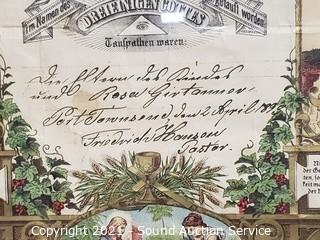 im Namen des
DREIEINIGEN GOTTES
getauft worden
Taufpathen waren:
Die Eltern des Kindes
und Rosa Girtanner
Port Townsend, den 2 April
Friedrich Hansen
Pastor.
Copyright 2021 - Sound Auction Service